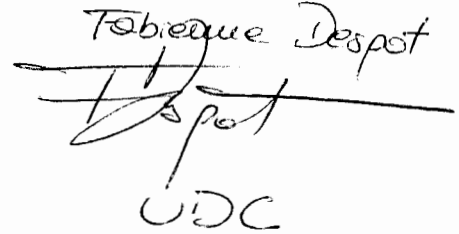 Fabienne Despot
Despot
UDC